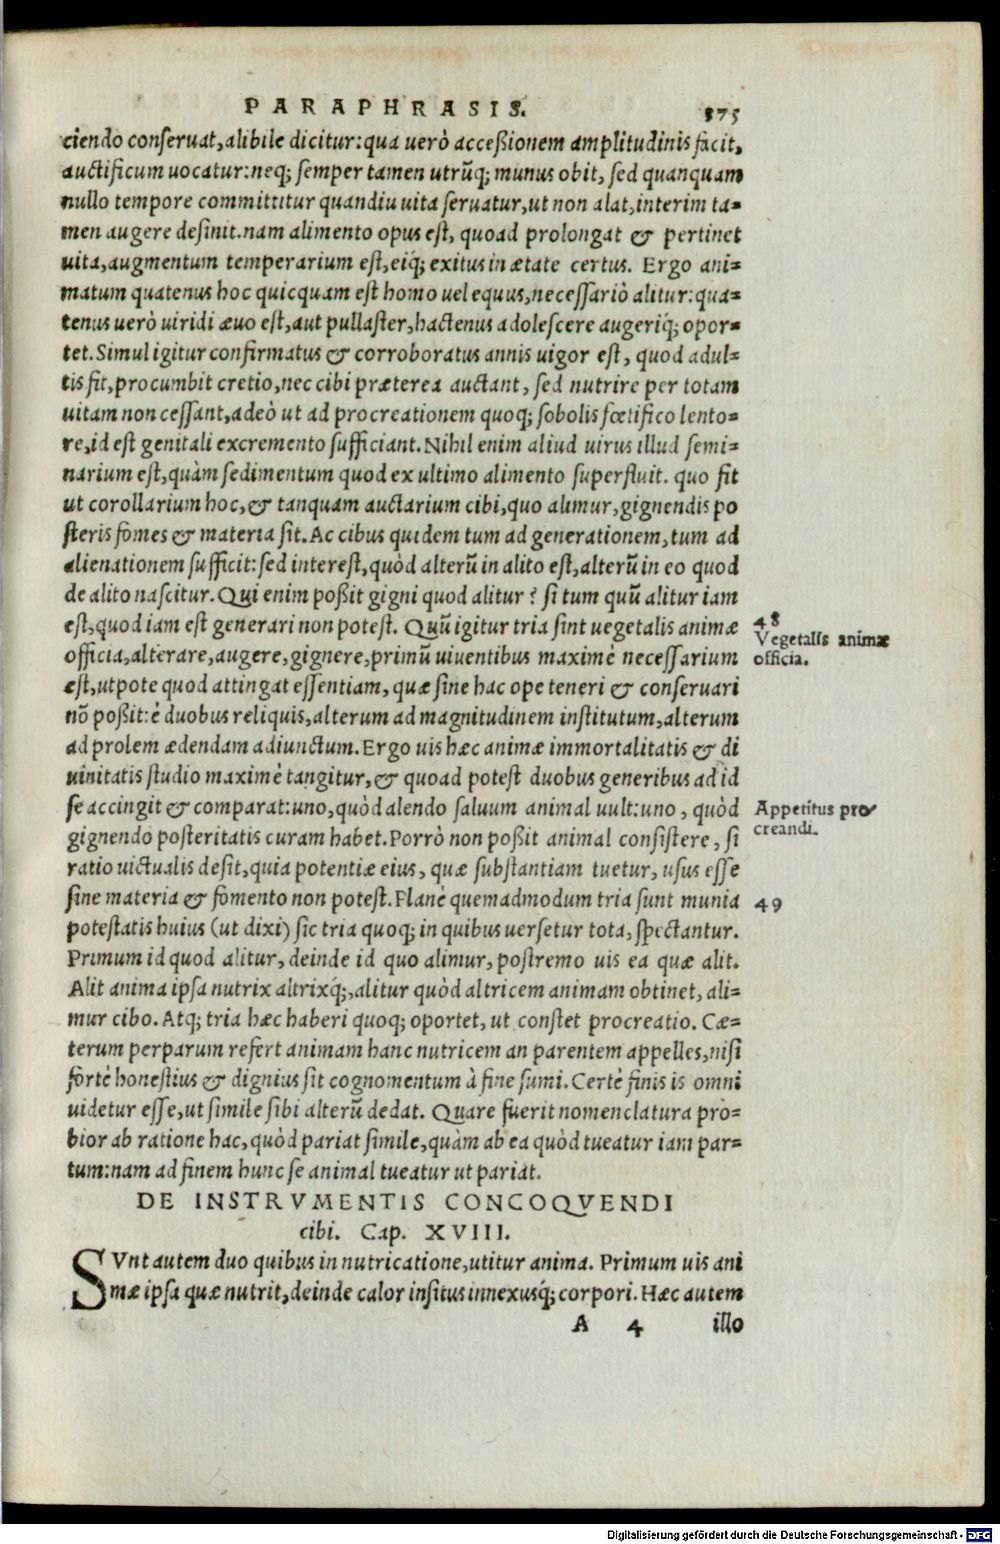 PARAPHRASIS. 375
ciendo conseruat, alibile dicitur: qua uerò acceßionem amplitudinis facit,
auctificum uocatur: neq; semper tamen utrũq; munus obit, sed quanquam
nullo tempore committitur quandiu uita seruatur, ut non alat, interim ta=
men augere desinit. nam alimento opus est, quoad prolongat & pertinet
uita, augmentum temperarium est, eiq́; exitus in ætate certus. Ergo ani=
matum quatenus hoc quicquam est homo uel equus, necessariò alitur: qua=
tenus uerò uiridi æuo est, aut pullaster, hactenus adolescere augeriq́; opor=
tet. Simul igitur confirmatus & corroboratus annis uigor est, quod adul=
tis fit, procumbit cretio, nec cibi præterea auctant, sed nutrire per totam
uitam non cessant, adeò ut ad procreationem quoq; sobolis fœtifico lento=
re, id est genitali excremento sufficiant. Nihil enim aliud uirus illud semi=
narium est, quàm sedimentum quod ex ultimo alimento superfluit. quo fit
ut corollarium hoc, & tanquam auctarium cibi, quo alimur, gignendis po
steris fomes & materia sit. Ac cibus quidem tum ad generationem, tum ad
alienationem sufficit: sed interest, quòd alterũ in alito est, alterũ in eo quod
de alito nascitur. Qui enim poßit gigni quod alitur? si tum quũ alitur iam
est, quod iam est generari non potest. Quũ igitur tria sint uegetalis animæ
officia, alterare, augere, gignere, primũ uiuentibus maximè necessarium
est, utpote quod attingat essentiam, quæ sine hac ope teneri & conseruari
nõ poßit: è duobus reliquis, alterum ad magnitudinem institutum, alterum
ad prolem ædendam adiunctum. Ergo uis hæc animæ immortalitatis & di
uinitatis studio maximè tangitur, & quoad potest duobus generibus ad id
se accingit & comparat: uno, quòd alendo saluum animal uult: uno, quòd
gignendo posteritatis curam habet. Porrò non poßit animal consistere, si
ratio uictualis desit, quia potentiæ eius, quæ substantiam tuetur, usus esse
sine materia & fomento non potest. Planè quemadmodum tria sunt munia
potestatis huius (ut dixi) sic tria quoq; in quibus uersetur tota, spectantur.
Primum id quod alitur, deinde id quo alimur, postremo uis ea quæ alit.
Alit anima ipsa nutrix altrixq́;, alitur quòd altricem animam obtinet, ali=
mur cibo. Atq; tria hæc haberi quoq; oportet, ut constet procreatio. Cæ=
terum perparum refert animam hanc nutricem an parentem appelles, nisi
fortè honestius & dignius sit cognomentum à fine sumi. Certè finis is omni
uidetur esse, ut simile sibi alterũ dedat. Quare fuerit nomenclatura pro=
bior ab ratione hac, quòd pariat simile, quàm ab ea quòd tueatur iam par=
tum: nam ad finem hunc se animal tueatur ut pariat.
48
Vegetalis animæ
officia.
Appetitus pro
creandi.
49
DE INSTRVMENTIS CONCOQVENDI
cibi. Cap. XVIII.
SVnt autem duo quibus in nutricatione, utitur anima. Primum uis ani
mæ ipsa quæ nutrit, deinde calor insitus innexusq́; corpori. Hæc autem
A 4 illo
Digitalisierung gefördert durch die Deutsche Forschungsgemeinschaft - DFG